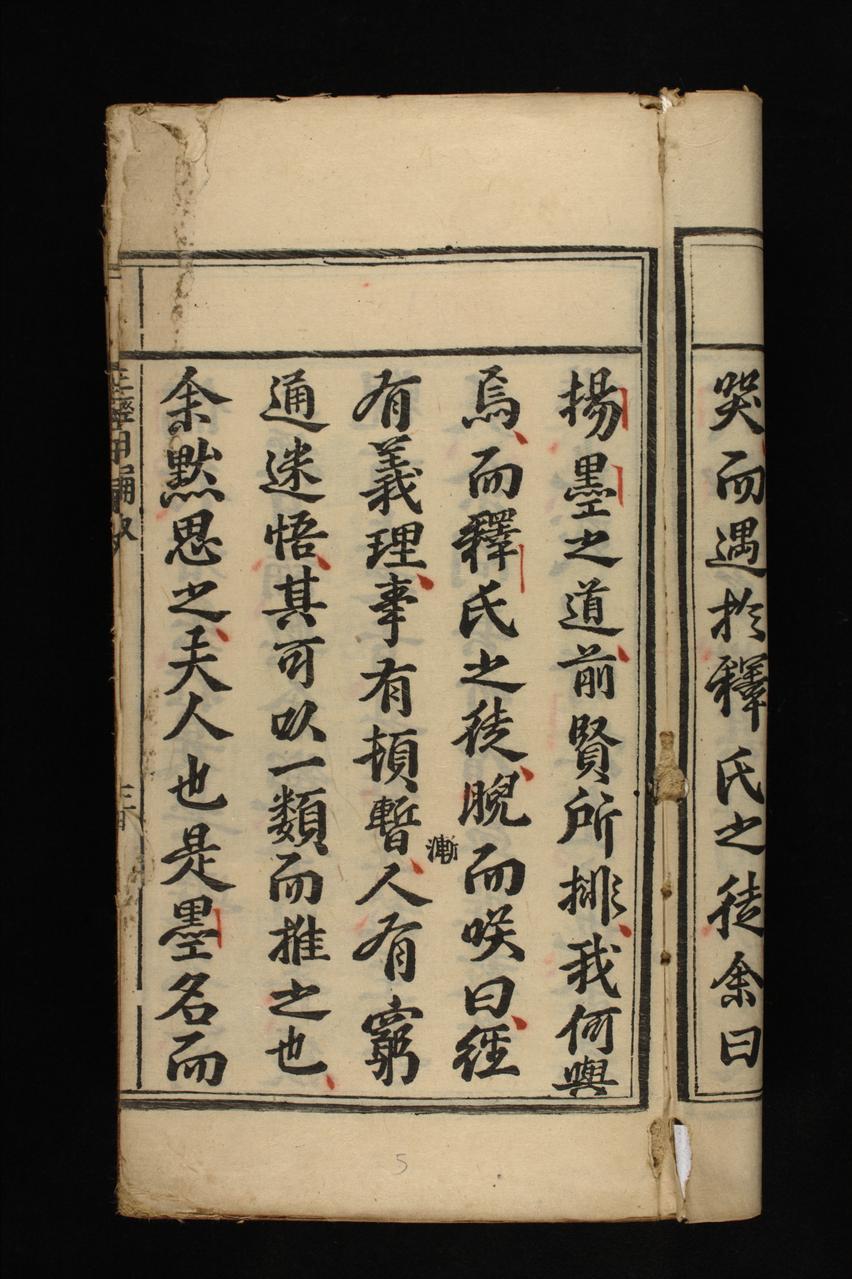 哭而遇於釋氏之徒余曰
揚墨之道前賢所排我何與
焉而釋氏之徒睨而咲曰經
有義理事有頓暫人有窮
漸
通迷悟其可以一類而推之也
余黙思之夫人也是墨名而
5